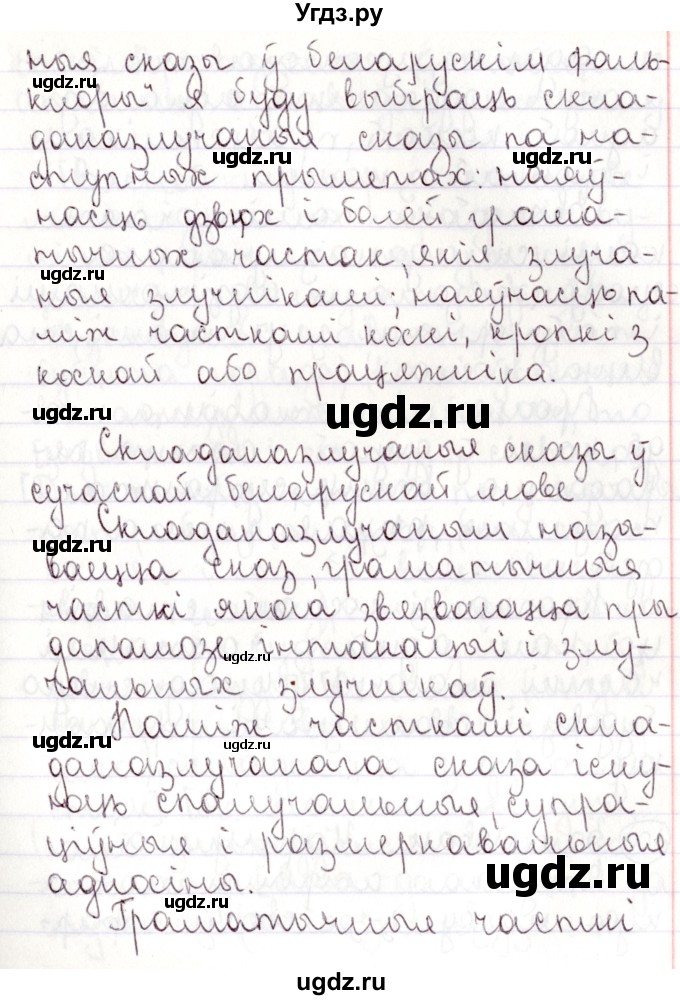 Угдз.ру
ныя сказы ў беларускім фаль-
клоры" я буду выбіраць скла-
даназлучаныя сказы па на-
ступных прыметах: наяў-
насць дзвюх і болей грама-
тычных частак, якія злуча-
ныя злучнікамі, наяўнасць па-
між часткамі коскі, кропкі з
коскай або працяжніка.
Складаназлучаныя сказы ў
сучаснай беларускай мове
Складаназлучаным назы-
ваецца сказ, граматычныя
часткі якога звязваюцца пры
дапамозе інтанацыі і злу-
чальных злучнікаў.
Паміж часткамі скла-
даназлучанага сказа існу-
юць спалучальныя, супра-
ціўныя і размеркавальныя
адносіны.
Граматычныя часткі
ugdz.ru
ugdz.ru
ugdz.ru
ugdz.ru
ugdz.ru
ugdz.ru
ugdz.ru
ugdz.ru
ugdz.ru
ugdz.ru
ugdz.ru
ugdz.ru
ugdz.ru
ugdz.ru